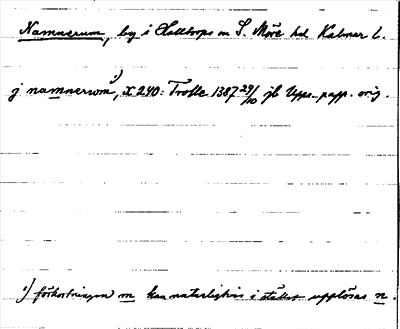 Namnerum, by i Halltorps sn S. Möre hd Kalmar l.
j namnerwm¹⁾, X 240: Trolle 1387 29/10 jb Upps. papp. orig.
¹⁾ förkortningen m kan naturligtvis i stället upplösas n.